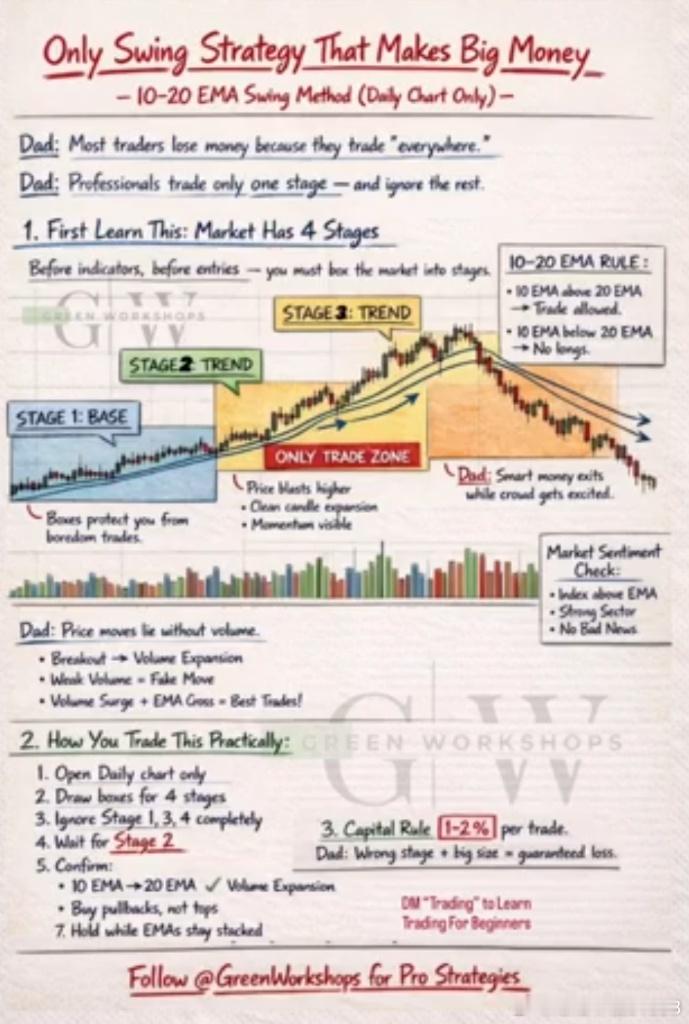 Only Swing Strategy That Makes Big Money
– 10–20 EMA Swing Method (Daily Chart Only) –
Dad: Most traders lose money because they trade "everywhere."
Dad: Professionals trade only one stage — and ignore the rest.
1. First Learn This: Market Has 4 Stages
Before indicators, before entries — you must box the market into stages.
10–20 EMA RULE:
• 10 EMA above 20 EMA
→ Trade allowed.
• 10 EMA below 20 EMA
→ No longs.
GW
GREEN WORKSHOPS
STAGE 3: TREND
STAGE 2: TREND
STAGE 1: BASE
ONLY TRADE ZONE
Boxes protect you from
boredom trades.
Price blasts higher
• Clean candle expansion
• Momentum visible
Dad: Smart money exits
while crowd gets excited.
Market Sentiment
Check:
• Index above EMA
• Strong Sector
• No Bad News
Dad: Price moves lie without volume.
• Breakout → Volume Expansion
• Weak Volume = Fake Move
• Volume Surge + EMA Cross = Best Trades!
GW
GREEN WORKSHOPS
2. How You Trade This Practically:
1. Open Daily chart only
2. Draw boxes for 4 stages
3. Ignore Stage 1, 3, 4 completely
4. Wait for Stage 2
5. Confirm:
• 10 EMA → 20 EMA ✓ Volume Expansion
• Buy pullbacks, not tops
7. Hold while EMAs stay stacked
3. Capital Rule 1–2% per trade.
Dad: Wrong stage + big size = guaranteed loss.
DM "Trading" to Learn
Trading For Beginners
Follow @GreenWorkshops for Pro Strategies